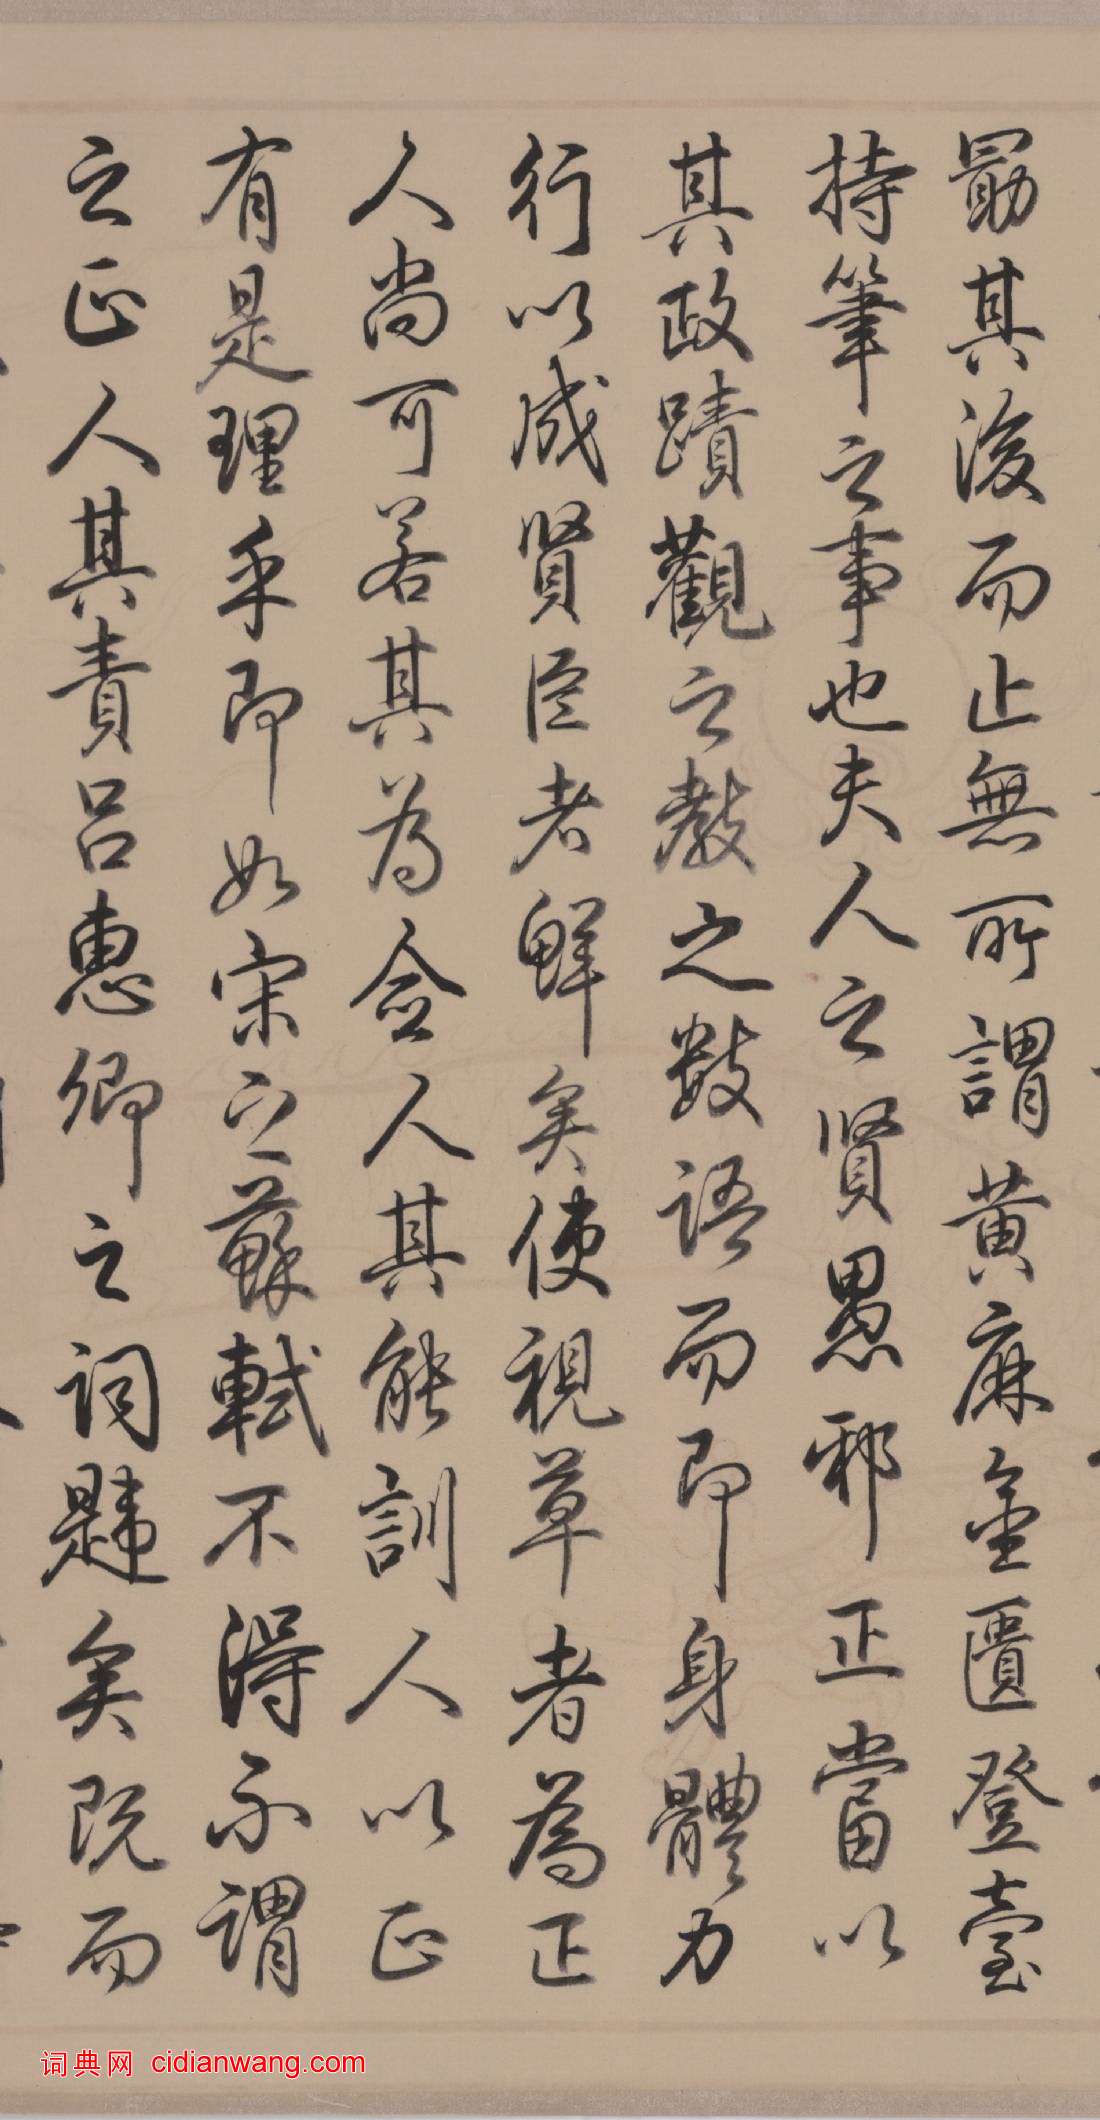 勗其後而止無所謂黃麻金匱登臺
持筆之事也夫人之賢愚邪正當以
其政蹟觀之教之數語而即身體力
行以成賢臣者鮮矣使視草者為正
人尚可若其為僉人其能訓人以正
有是理乎即如宋之蘇軾不得不謂
之正人其責呂惠卿之詞韙矣既而
词典网 cidianwang.com